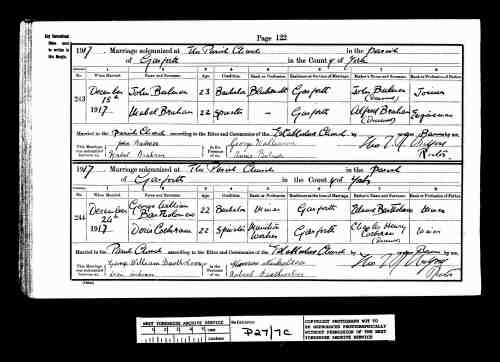 Page 122
1917. Marriage solemnized at The Parish Church in the Parish
of Garforth in the County of York
No. When Married. Name and Surname. Age Condition. Rank or Profession. Residence at the time of Marriage. Father's Name and Surname. Rank or Profession of Father.
243 December 15th 1917. John Bulmer 23 Bachelor Garforth John Bulmer (Deceased) Joiner
Mabel Braham 22 Spinster – Garforth Alfred Braham (Deceased) Engineman
Married in the Parish Church according to the Rites and Ceremonies of the Established Church by
This Marriage was solemnized between us, John Bulmer Mabel Braham in the Presence of us, George Williamson Annie Bulmer Rector
1917. Marriage solemnized at The Parish Church in the Parish
of Garforth in the County of York
No. When Married. Name and Surname. Age Condition. Rank or Profession. Residence at the time of Marriage. Father's Name and Surname. Rank or Profession of Father.
244 December 24th 1917. George William Bartholomew 22 Bachelor Miner Garforth Bartholomew Miner
Doris Cockram 22 Spinster Munition Worker Garforth Charles Henry Cockram (Deceased) Miner
Married in the Parish Church according to the Rites and Ceremonies of the Established Church by
This Marriage was solemnized between us, George William Bartholomew Doris Cockram in the Presence of us, Rector
WEST YORKSHIRE ARCHIVE SERVICE
Reference: P27/7C
COPYRIGHT PHOTOGRAPH NOT TO
BE REPRODUCED PHOTOGRAPHICALLY
WITHOUT PERMISSION OF THE WEST
YORKSHIRE ARCHIVE SERVICE